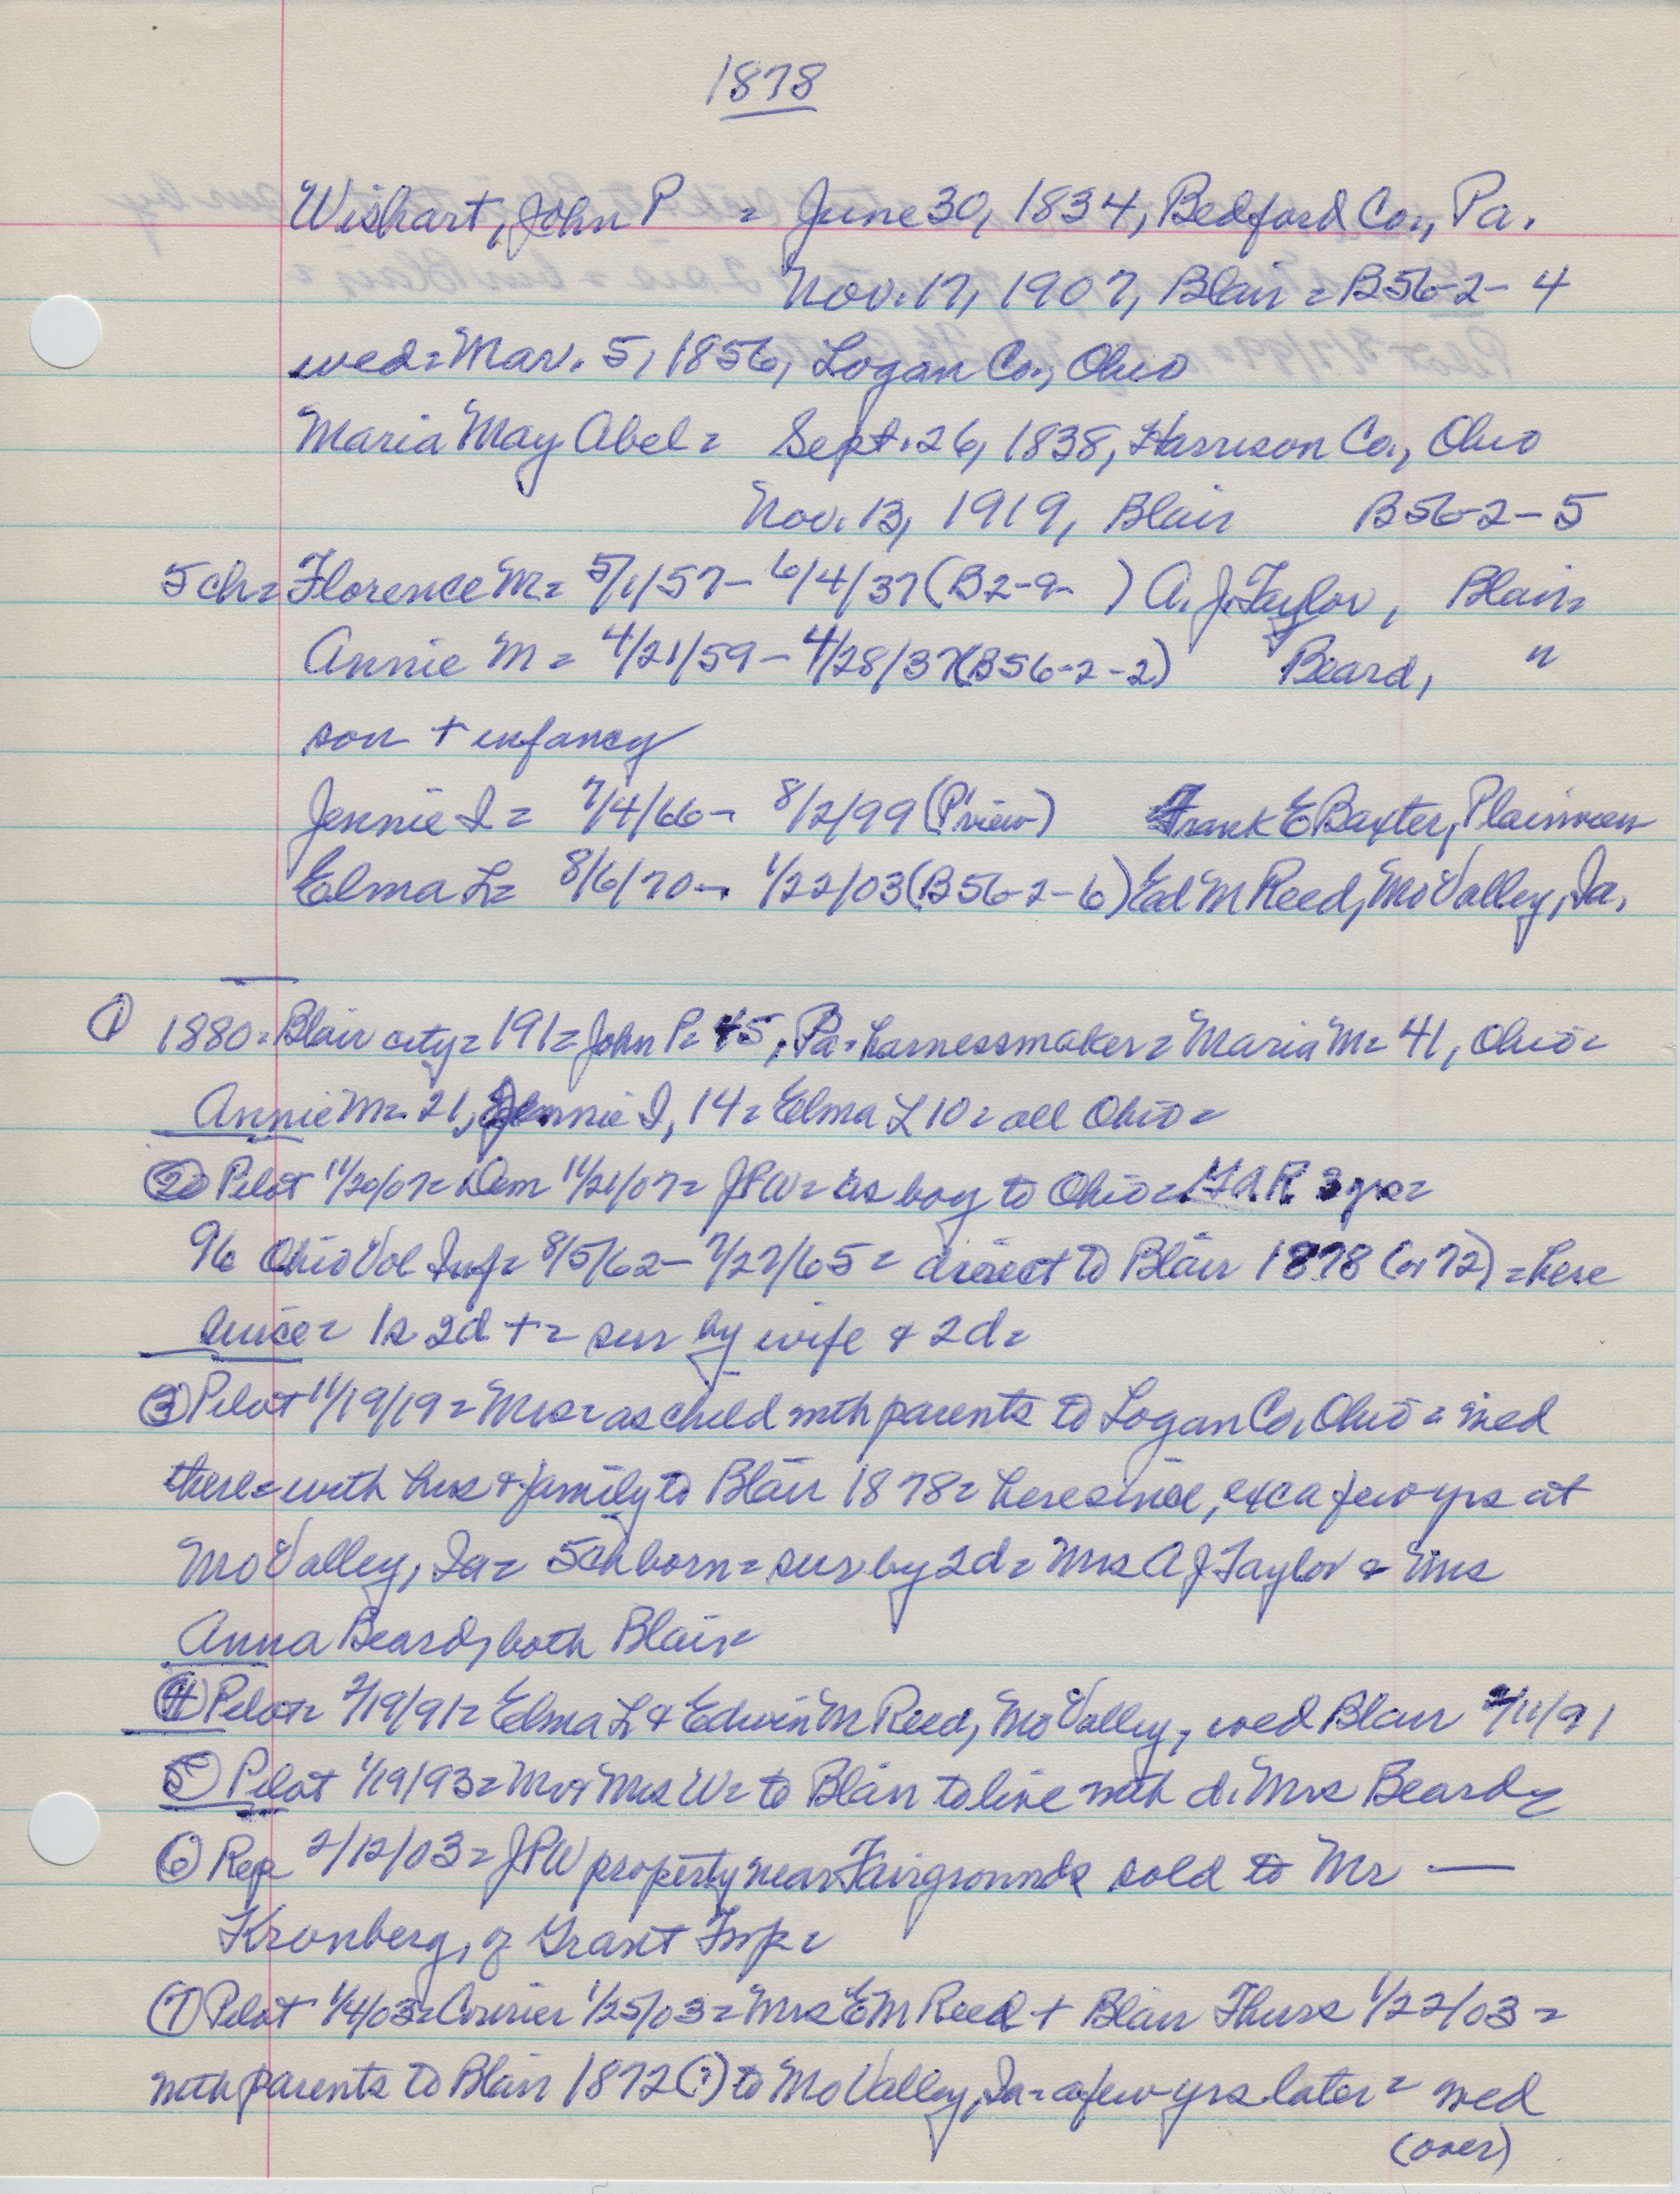 1878
Wishart, John P = June 30, 1834, Bedford Co., Pa.
Nov. 17, 1907, Blair = B56-2-4
wed = Mar. 5, 1856, Logan Co., Ohio
Maria May Abel = Sept. 26, 1838, Harrison Co., Ohio
Nov. 13, 1919, Blair B56-2-5
5 ch = Florence M = 5/1/57 - 6/4/37 (B2-9- ) A. J. Taylor, Blair =
Annie M = 4/21/59 - 4/28/37 (B56-2-2) Beard, "
son + infancy
Jennie I = 7/4/66 - 8/2/99 (P'view) Frank E Baxter, Plainview
Elma L = 8/6/70 - 1/22/03 (B56-2-6) Ed M Reed, Mo Valley, Ia.
① 1880 = Blair city = 191 = John P = 45, Pa = harnessmaker = Maria M = 41, Ohio =
Annie M = 21, Jennie I, 14 = Elma L 10 = all Ohio =
② Pilot 11/20/07 = Dem 11/21/07 = JPW = as boy to Ohio = GAR 3 yrs =
96 Ohio Vol Inf = 8/5/62 - 7/27/65 = direct to Blair 1878 (or 72) = here
since = 1s 2d + = sur by wife & 2d =
③ Pilot 11/19/19 = Mrs = as child with parents to Logan Co, Ohio = wed
there = with hus & family to Blair 1878 = here since, exc a few yrs at
Mo Valley, Ia = 5 ch born = sur by 2d = Mrs A J Taylor & Mrs
Anna Beard, both Blair =
④ Pilot = 2/19/91 = Elma L & Edwin M Reed, Mo Valley, wed Blair 2/11/91
⑤ Pilot 1/19/93 = Mr & Mrs W = to Blair to live with d. Mrs Beard =
⑥ Rep 2/12/03 = JPW property near Fairgrounds sold to Mr —
Kronberg, of Grant Twp =
⑦ Pilot 1/4/03 = Courier 1/25/03 = Mrs E M Reed + Blair Thurs 1/22/03 =
with parents to Blair 1872 (?) to Mo Valley, Ia = a few yrs later = wed
(over)